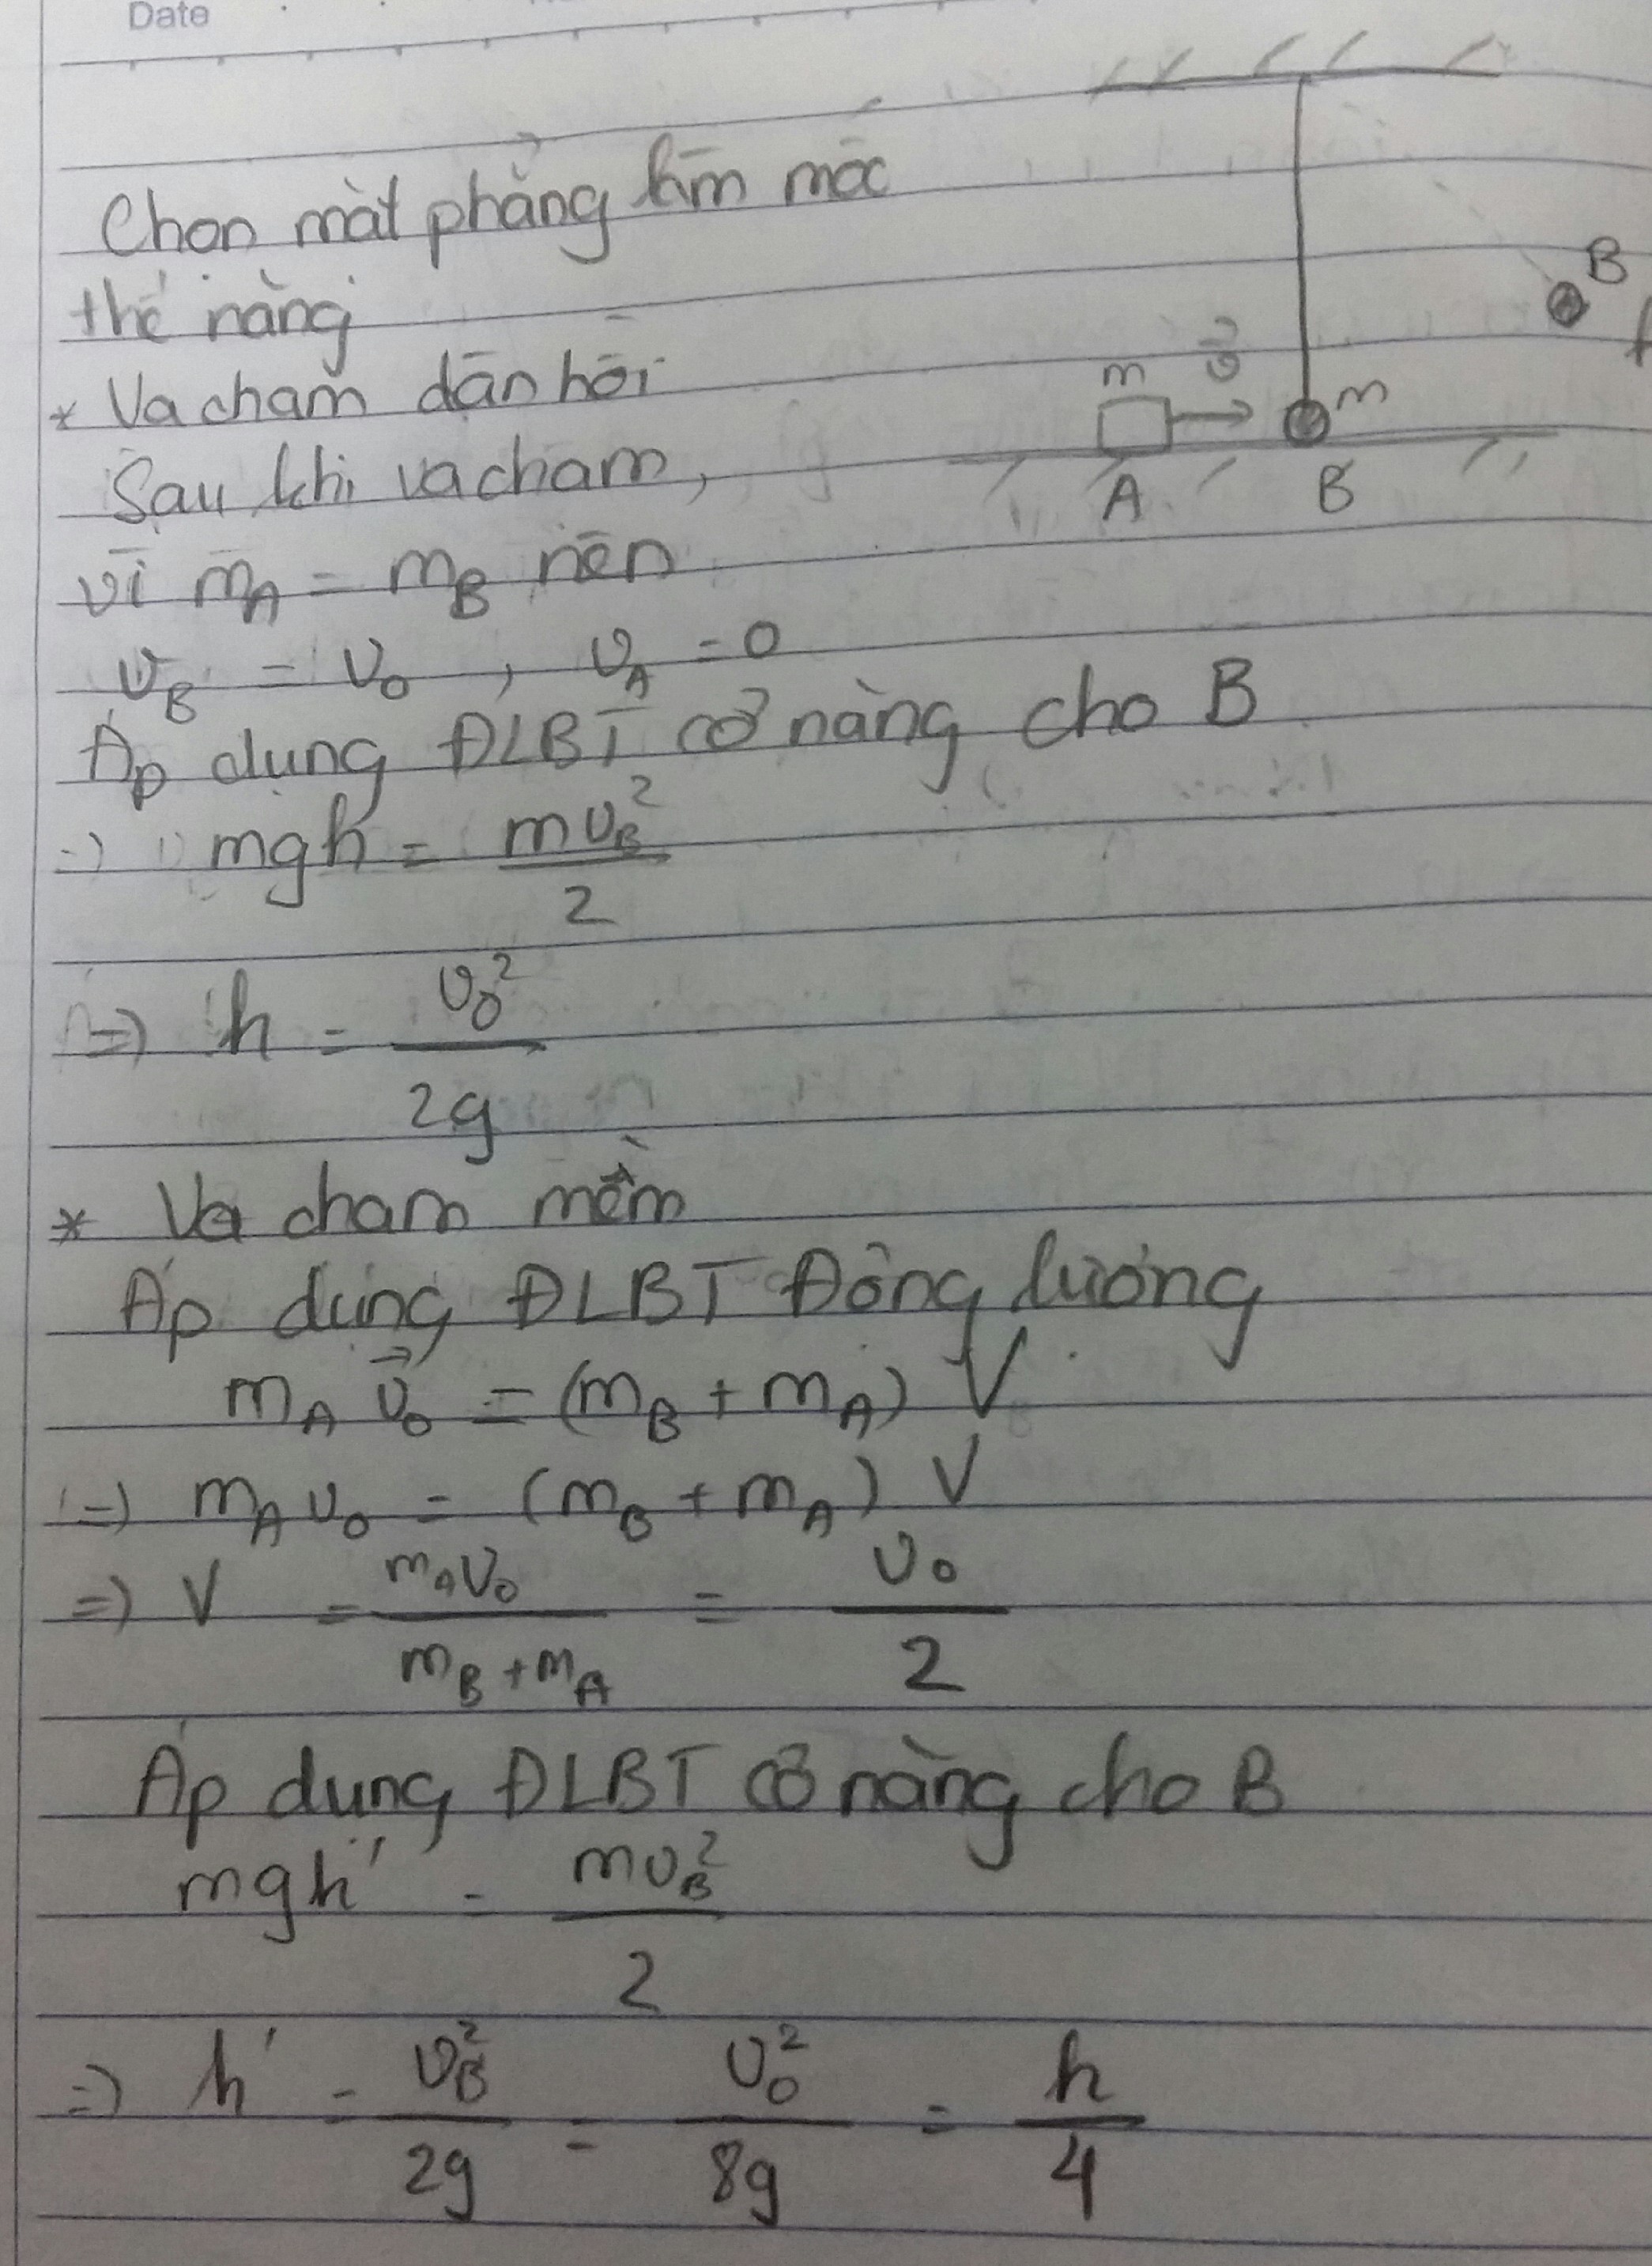 Date
Chọn mặt phẳng làm mốc
thế năng
* Va chạm đàn hồi
Sau khi va chạm,
vì mA = mB nên
vB = v0 , vA = 0
Áp dụng ĐLBT cơ năng cho B
=> mgh = mvB²/2
=> h = v0²/2g
* Va chạm mềm
Áp dụng ĐLBT Động lượng
mA v⃗0 = (mB + mA) V
=> mA v0 = (mB + mA) V
=> V = mAv0/(mB + mA) = v0/2
Áp dụng ĐLBT cơ năng cho B
mgh' = mvB²/2
=> h' = vB²/2g = v0²/8g = h/4
B
m
m
A
B